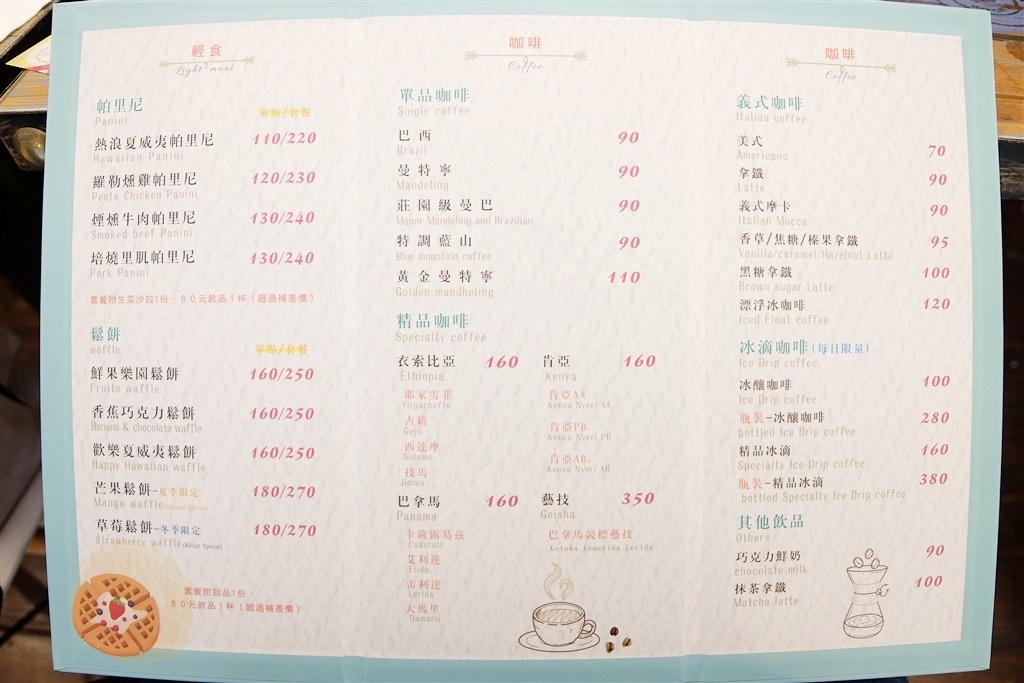 輕食
Light meal
帕里尼 單點/套餐
Panini
熱浪夏威夷帕里尼 110/220
Hawaiian Panini
羅勒燻雞帕里尼 120/230
Pesto Chicken Panini
煙燻牛肉帕里尼 130/240
Smoked beef Panini
培燒里肌帕里尼 130/240
Pork Panini
套餐附生菜沙拉1份、80元飲品1杯(超過補差價)
鬆餅 單點/套餐
waffle
鮮果樂園鬆餅 160/250
Fruits waffle
香蕉巧克力鬆餅 160/250
Banana & chocolate waffle
歡樂夏威夷鬆餅 160/250
Happy Hawaiian waffle
芒果鬆餅-夏季限定 180/270
Mango waffle
草莓鬆餅-冬季限定 180/270
Strawberry waffle(Winter Special)
套餐附甜品1份、
80元飲品1杯(超過補差價)
咖啡
Coffee
單品咖啡
Single coffee
巴西 90
Brazil
曼特寧 90
Mandeling
莊園級曼巴 90
Manor Mandeling and Brazilian
特調藍山 90
Blue mountain coffee
黃金曼特寧 110
Golden mandheling
精品咖啡
Specialty coffee
衣索比亞 160
Ethiopia
耶家雪菲
Yirgacheffe
古籍
Guji
西達摩
Sidama
技馬
Jimma
肯亞 160
Kenya
肯亞AA
Kenya Nyeri AA
肯亞PB
Kenya Nyeri PB
肯亞AB
Kenya Nyeri AB
巴拿馬 160
Panama
卡薩露易茲
艾利達
Elida
雷利達
Lerida
大馬里
Damarli
藝技 350
Geisha
巴拿馬競標藝技
Kotowa.Esmerida.Lerida
咖啡
Coffee
義式咖啡
Italian coffee
美式 70
Americano
拿鐵 90
Latte
義式摩卡 90
Italian Mocca
香草/焦糖/榛果拿鐵 95
Vanilla/caramel/Hazelnut Latte
黑糖拿鐵 100
Brown sugar Latte
漂浮冰咖啡 120
Iced Float coffee
冰滴咖啡(每日限量)
Ice Drip coffee
冰釀咖啡 100
Ice Drip coffee
瓶裝-冰釀咖啡 280
bottled Ice Drip coffee
精品冰滴 160
Specialty Ice Drip coffee
瓶裝-精品冰滴 380
bottled Specialty Ice Drip coffee
其他飲品
Others
巧克力鮮奶 90
chocolate milk
抹茶拿鐵 100
Matcha latte